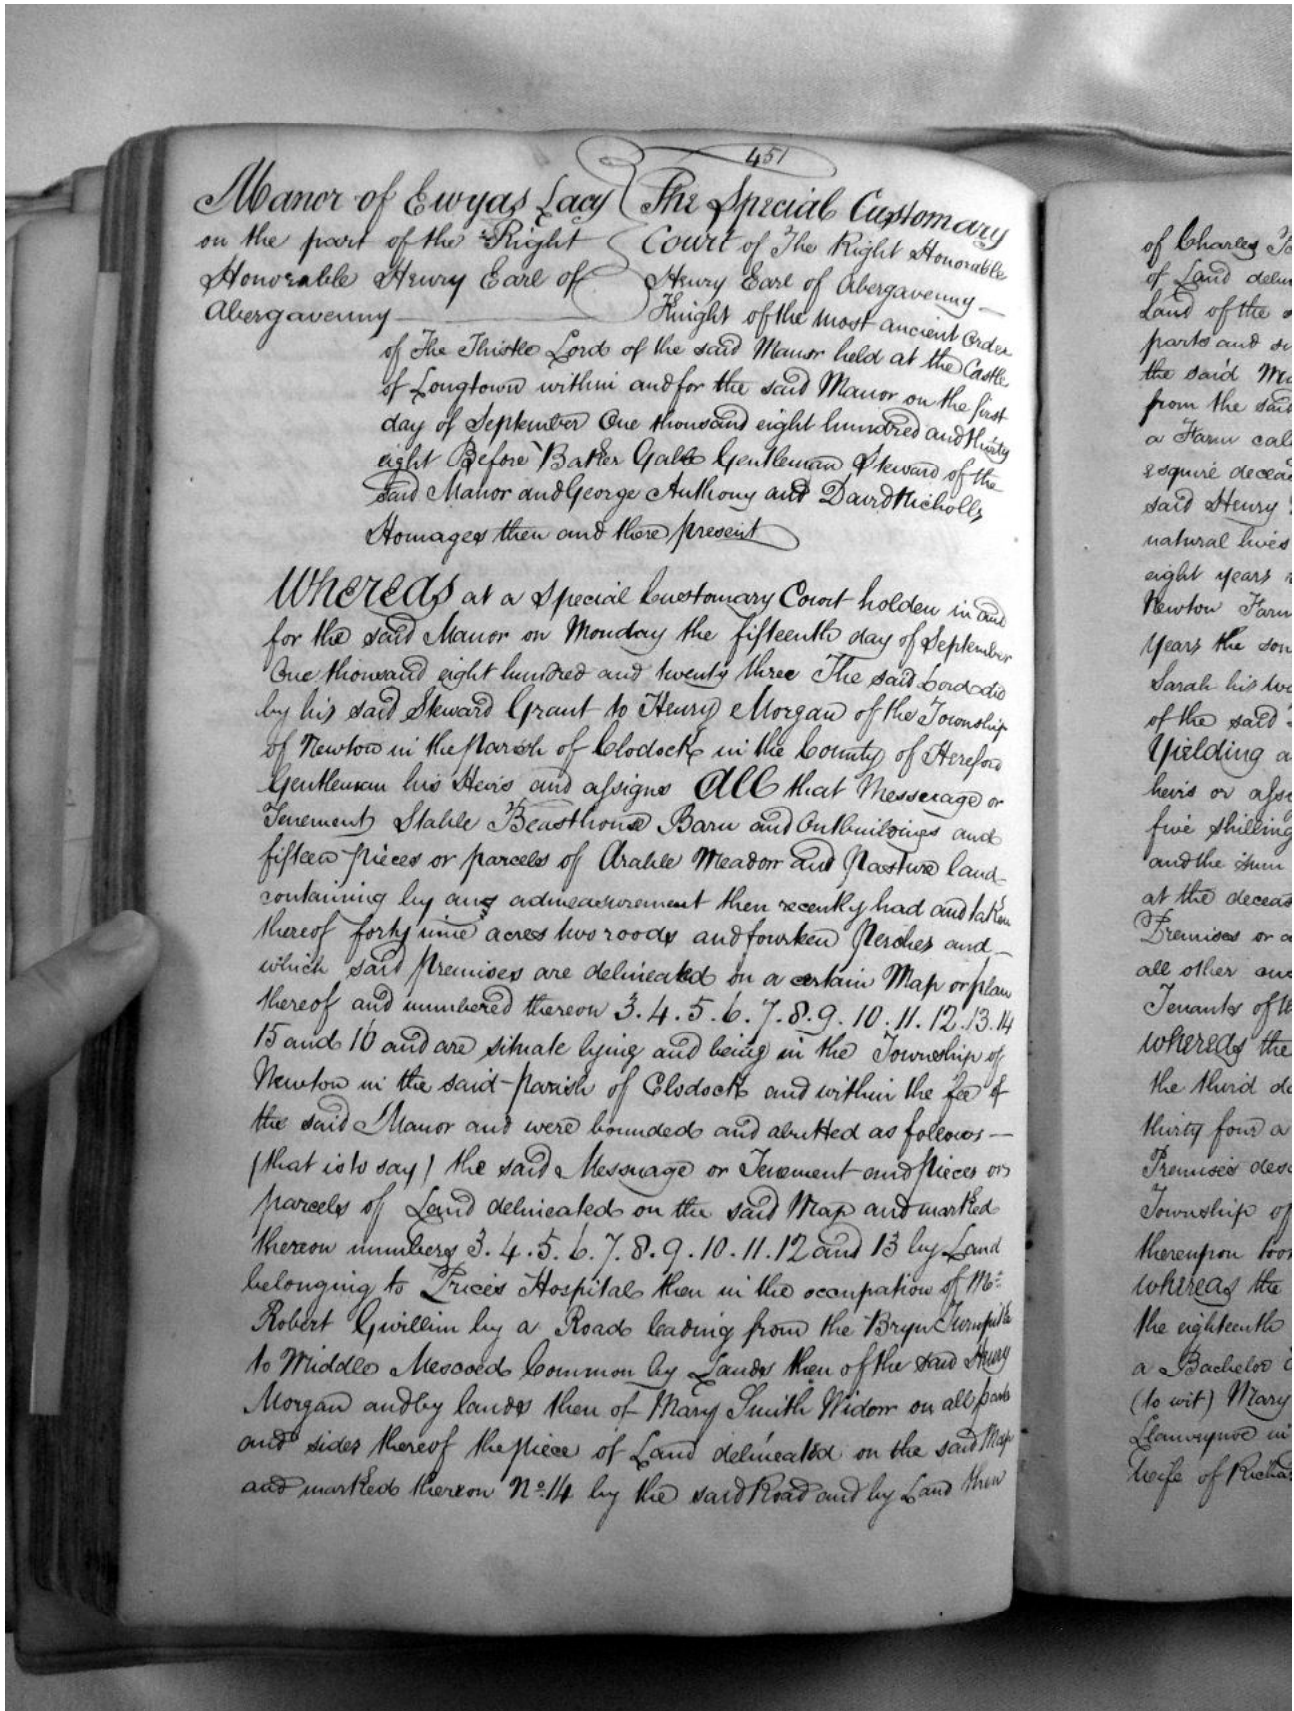 451
Manor of Ewyas Lacy
on the part of the Right
Honorable Henry Earl of
Abergavenny
The Special Customary
Court of The Right Honorable
Henry Earl of Abergavenny
Knight of the most ancient Order
of The Thistle Lord of the said Manor held at the Castle
of Longtown within and for the said Manor on the first
day of September One thousand eight hundred and thirty
eight Before Baker Gabb Gentleman Steward of the
said Manor and George Anthony and David Nicholls
Homages then and there present
Whereas at a Special Customary Court holden in and
for the said Manor on Monday the fifteenth day of September
One thousand eight hundred and twenty three The said Lord did
by his said Steward Grant to Henry Morgan of the Township
of Newton in the Parish of Clodock in the County of Hereford
Gentleman his Heirs and assigns All that Messuage or
Tenement Stable Beasthouse Barn and Outbuildings and
fifteen pieces or parcels of Arable Meadow and Pasture land
containing by an admeasurement then recently had and taken
thereof forty nine acres two roods and fourteen Perches and
which said premises are delineated on a certain Map or plan
thereof and numbered thereon 3.4.5.6.7.8.9.10.11.12.13.14
15 and 16 and are situate lying and being in the Township of
Newton in the said parish of Clodock and within the fee of
the said Manor and were bounded and abutted as follows —
(that is to say) the said Messuage or Tenement and pieces or
parcels of Land delineated on the said Map and marked
thereon numbers 3.4.5.6.7.8.9.10.11.12 and 13 by Land
belonging to Prices Hospital then in the occupation of Mr
Robert Gwillim by a Road leading from the Bryn Turnpike
to Middle Mescoed Common by Lands then of the said Henry
Morgan and by lands then of Mary Smith Widow on all parts
and sides thereof the piece of Land delineated on the said Map
and marked thereon No. 14 by the said Road and by Land then
of Charles
of Land
Land of the
parts and
the said
from the said
a Farm
esquire
said Henry
natural lives
eight years
Newton Farm
years the son
Sarah his
of the said
Yielding
heirs or
five shilling
and the sum
at the
Premises or
all other
Tenants of
whereas the
the third
thirty four a
Premises
Township of
thereupon
whereas the
the eighteenth
a Bachelor
(to wit) Mary
Llanveynoe in
Wife of